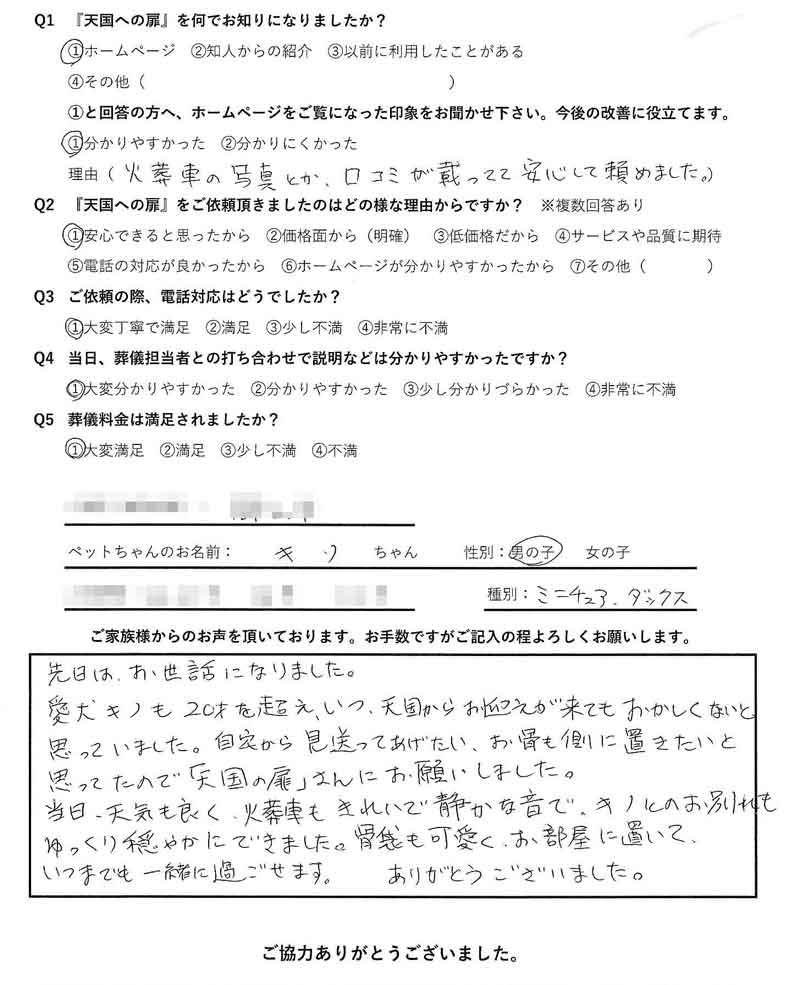 Q1 『天国への扉』を何でお知りになりましたか？
①ホームページ ②知人からの紹介 ③以前に利用したことがある
④その他（ ）
①と回答の方へ、ホームページをご覧になった印象をお聞かせ下さい。今後の改善に役立てます。
①分かりやすかった ②分かりにくかった
理由（火葬車の写真とか、口コミが載ってて安心して頼めました。）
Q2 『天国への扉』をご依頼頂きましたのはどの様な理由からですか？ ※複数回答あり
①安心できると思ったから ②価格面から（明確） ③低価格だから ④サービスや品質に期待
⑤電話の対応が良かったから ⑥ホームページが分かりやすかったから ⑦その他（ ）
Q3 ご依頼の際、電話対応はどうでしたか？
①大変丁寧で満足 ②満足 ③少し不満 ④非常に不満
Q4 当日、葬儀担当者との打ち合わせで説明などは分かりやすかったですか？
①大変分かりやすかった ②分かりやすかった ③少し分かりづらかった ④非常に不満
Q5 葬儀料金は満足されましたか？
①大変満足 ②満足 ③少し不満 ④不満
ペットちゃんのお名前： キノ ちゃん 性別：男の子 女の子
種別：ミニチュア．ダックス
ご家族様からのお声を頂いております。お手数ですがご記入の程よろしくお願いします。
先日は、お世話になりました。
愛犬キノも20才を超え、いつ、天国からお迎えが来てもおかしくないと
思っていました。自宅から見送ってあげたい、お骨も側に置きたいと
思ってたので「天国の扉」さんにお願いしました。
当日、天気も良く、火葬車もきれいで静かな音で、キノとのお別れも
ゆっくり穏やかにできました。骨袋も可愛く、お部屋に置いて、
いつまでも一緒に過ごせます。 ありがとうございました。
ご協力ありがとうございました。